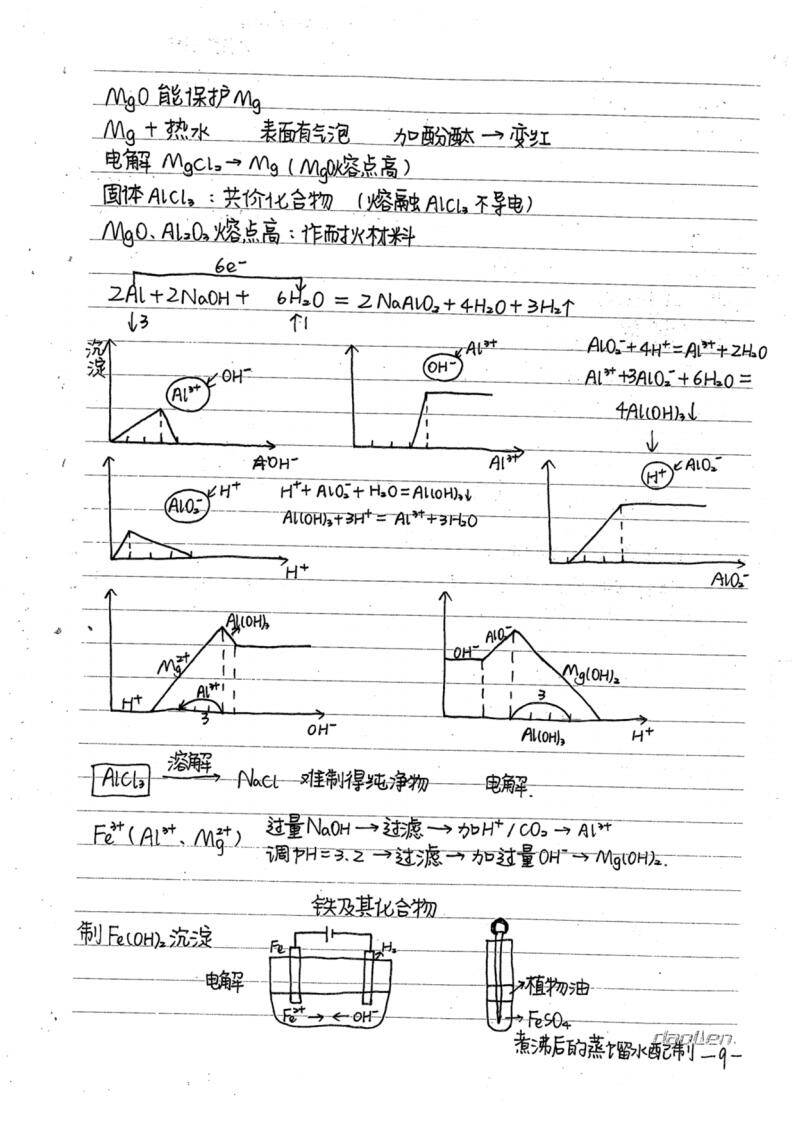 MgO 能保护Mg
Mg + 热水 表面有气泡 加酚酞 → 变红
电解 MgCl₂ → Mg (MgO熔点高)
固体 AlCl₃ : 共价化合物 (熔融 AlCl₃ 不导电)
MgO、Al₂O₃ 熔点高 : 作耐火材料
6e⁻
2Al + 2NaOH + 6H₂O = 2NaAlO₂ + 4H₂O + 3H₂↑
↓3 ↑1
沉淀
Al³⁺ OH⁻
OH⁻
OH⁻ Al³⁺
Al³⁺
AlO₂⁻ + 4H⁺ = Al³⁺ + 2H₂O
Al³⁺ + 3AlO₂⁻ + 6H₂O =
4Al(OH)₃↓
↓
AlO₂⁻ H⁺
H⁺
H⁺ + AlO₂⁻ + H₂O = Al(OH)₃↓
Al(OH)₃ + 3H⁺ = Al³⁺ + 3H₂O
H⁺ AlO₂⁻
AlO₂⁻
Al(OH)₃
Mg²⁺
Al³⁺
H⁺
3
OH⁻
OH⁻
AlO₂⁻
Mg(OH)₂
3
Al(OH)₃
H⁺
AlCl₃ 溶解 → NaCl 难制得纯净物 电解.
Fe³⁺ (Al³⁺、Mg²⁺) 过量NaOH → 过滤 → 加H⁺/CO₂ → Al³⁺
调PH = 3.2 → 过滤 → 加过量OH⁻ → Mg(OH)₂.
铁及其化合物
制Fe(OH)₂沉淀
电解
Fe H₂
Fe²⁺ → ← OH⁻
→植物油
→FeSO₄
煮沸后的蒸馏水配制
-9-